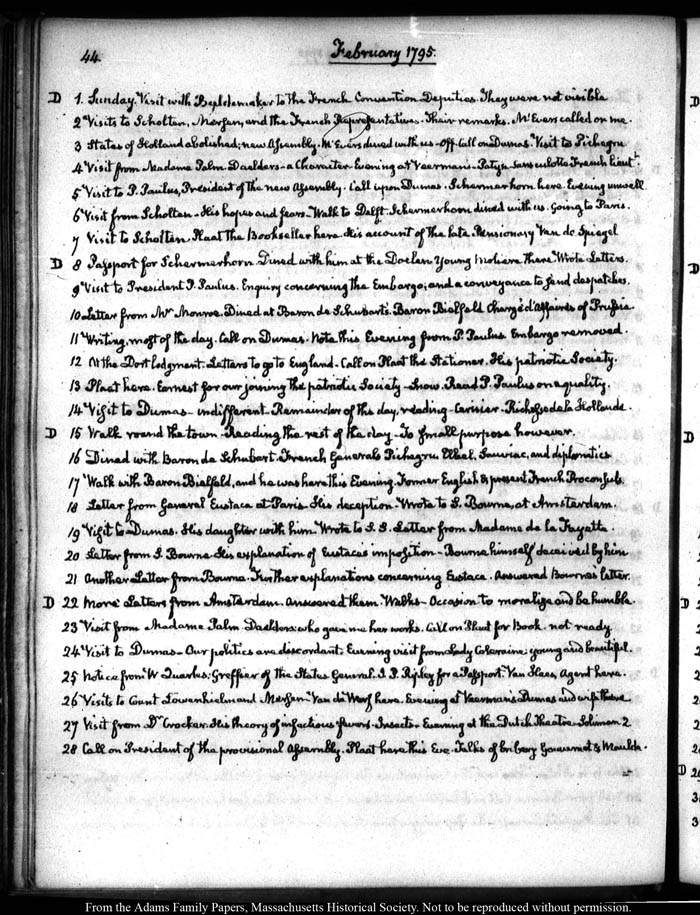 44 February 1795.
D 1. Sunday. Visit with Beeldemaker to the French Convention Deputies. They were not visible
2 Visits to Scholten, Mersen, and the French Representatives. Their remarks. Mr. Evers called on me.
3 States of Holland abolished; new Assembly. Mr Evers dined with us. Off. Call on Dumas. Visit to Pichegru
4 Visit from Madame Palm Daelders - a Character Evening at Veerman's. Sansculotte French lieut.
5 Visit to P. Paulus, President of the new Assembly. Call upon Dumas. Schermerhorn here. Evening unwell.
6 Visit from Scholten. His hopes and fears. Walk to Delft. Schermerhorn dined with us. Going to Paris.
7 Visit to Scholten. Plaat the Bookseller here. His account of the late Pensionary Van de Spiegel
D 8 Passport for Schermerhorn. Dined with him at the Doelen Young Moliere there. Wrote Letters.
9 Visit to President P. Paulus. Enquiry concerning the Embargo, and a conveyance to send despatches.
10 Letter from Mr. Monroe. Dined at Baron de Schubart's. Baron Bielfeld Chargé d'Affaires of Prussia.
11 Writing, most of the day. Call on Dumas. Note this Evening from P. Paulus. Embargo removed.
12 At the Dort lodgment. Letters to go to England. Call on Plaat the Stationer. His patriotic Society.
13 Plaat here. Earnest for our joining the patriotic Society - Snow. Read P. Paulus on equality.
14 Visit to Dumas - indifferent. Remainder of the day, reading - Cerisier. Richesse de la Hollande.
D 15 Walk round the town. Reading the rest of the day - To small purpose however.
16 Dined with Baron de Schubart. French Generals Pichegru Elbel, Sauviac, and diplomatics
17 Walk with Baron Bielfeld, and he was here this Evening. Former English & present French Proconsuls.
18 Letter from General Eustace at Paris. His deception. Wrote to S. Bourne, at Amsterdam.
19 Visit to Dumas. His daughter with him. Wrote to S. B. Letter from Madame de la Fayette.
20 Letter from S. Bourne. His explanation of Eustace's imposition - Bourne himself deceived by him
21 Another Letter from Bourne. Further explanations concerning Eustace. Answered Bourne's letter.
D 22 More Letters from Amsterdam. Answered them. Walks - Occasion to moralize and be humble.
23 Visit from Madame Palm Daelders: who gave me her works. Call on Plaat for Book. not ready
24 Visit to Dumas - Our politics are discordant. Evening visit from Lady Coleraine; young and beautiful.
25 Notice from W Quarles; Greffier of the States General. J. P. Ripley for a Passport. Van Hees, Agent here.
26 Visits to Count Lowenhielm and Mersen. Van de Werf here. Evening at Veerman's Dumas and wife there
27 Visit from Dr. Crocker. His theory of infectious fevers. Insects - Evening at the Dutch Theatre. Soliman 2
28 Call on President of the provisional Assembly. Plaat here this Eve. Talks of bribery
From the Adams Family Papers, Massachusetts Historical Society. Not to be reproduced without permission.